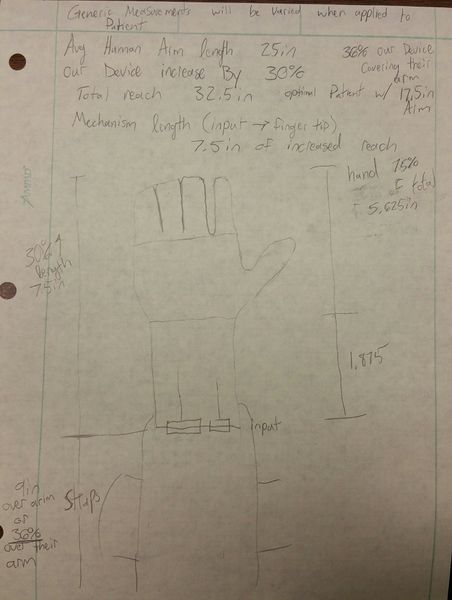 Generic Measurements will be varied when applied to
Patient
Avg Human Arm length 25in
Our Device increase By 30%
Total reach 32.5in
36% our Device
Covering their
arm
optimal Patient w/ 17.5in
Arm
Mechanism length (input → finger tip)
7.5in of increased reach
hand 75%
of total
5.625in
30% ↑
length
7.5in
1.875
input
Straps
9in
over arm
or
36%
over their
arm